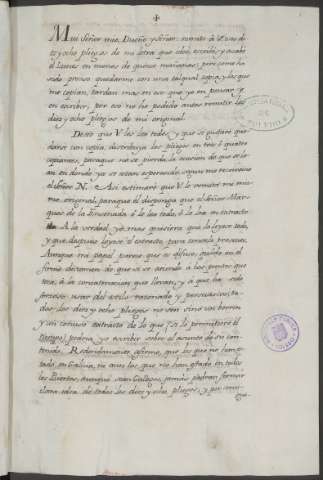 Mui Señor mio, Dueño y Señor: remito à V. los di-
ez y ocho pliegos de mi letra que ideé, escribi, y acabé
el Lunes en menos de quince mañanas; pero como ha
sido preciso quedarme con una tal qual copia, y los que
me copian, tardan mas en eso que yo en pensar, y
en escribir, por eso no he podido antes remitir los
diez y ocho pliegos de mi original.
Deseo que V. los lea todos, y que si gustare que-
darse con copia, distribuya los pliegos en tres ó quatro
copiantes, para que no se pierda la ocasion de que se le-
an en donde ya se estan esperando segun me
el señor N. Asi estimaré que V. lo remita me mis-
mo original, para que èl disponga que el Señor Mar-
ques de la Ensenada ò lo lea todo, ò lo lea en extracto
A la verdad yo mas quisiera que la leyese todo,
y que despues leyese el extracto, para tenerlo presente.
Aunque mi papel parece que es difuso, quise en el
forma dictamen de que si se atiende à los puntos que
toca, à la concatenacion que llevan, y a que ha sido
forzoso usar del estilo razonado y persuasivo, to-
dos los diez y ocho pliegos no son sino un borron
y un confuso extracto de lo que (si lo permitiere el
tiempo) podria yo escribir sobre el asunto de su con-
tenido. Redondamente afirmo, que los que no han es-
tado en Galicia, ni aun los que no han estado en todos
los Puertos, aunque sean Gallegos, jamás podran formar
clara idea de todos los diez y ocho pliegos, y por consi-